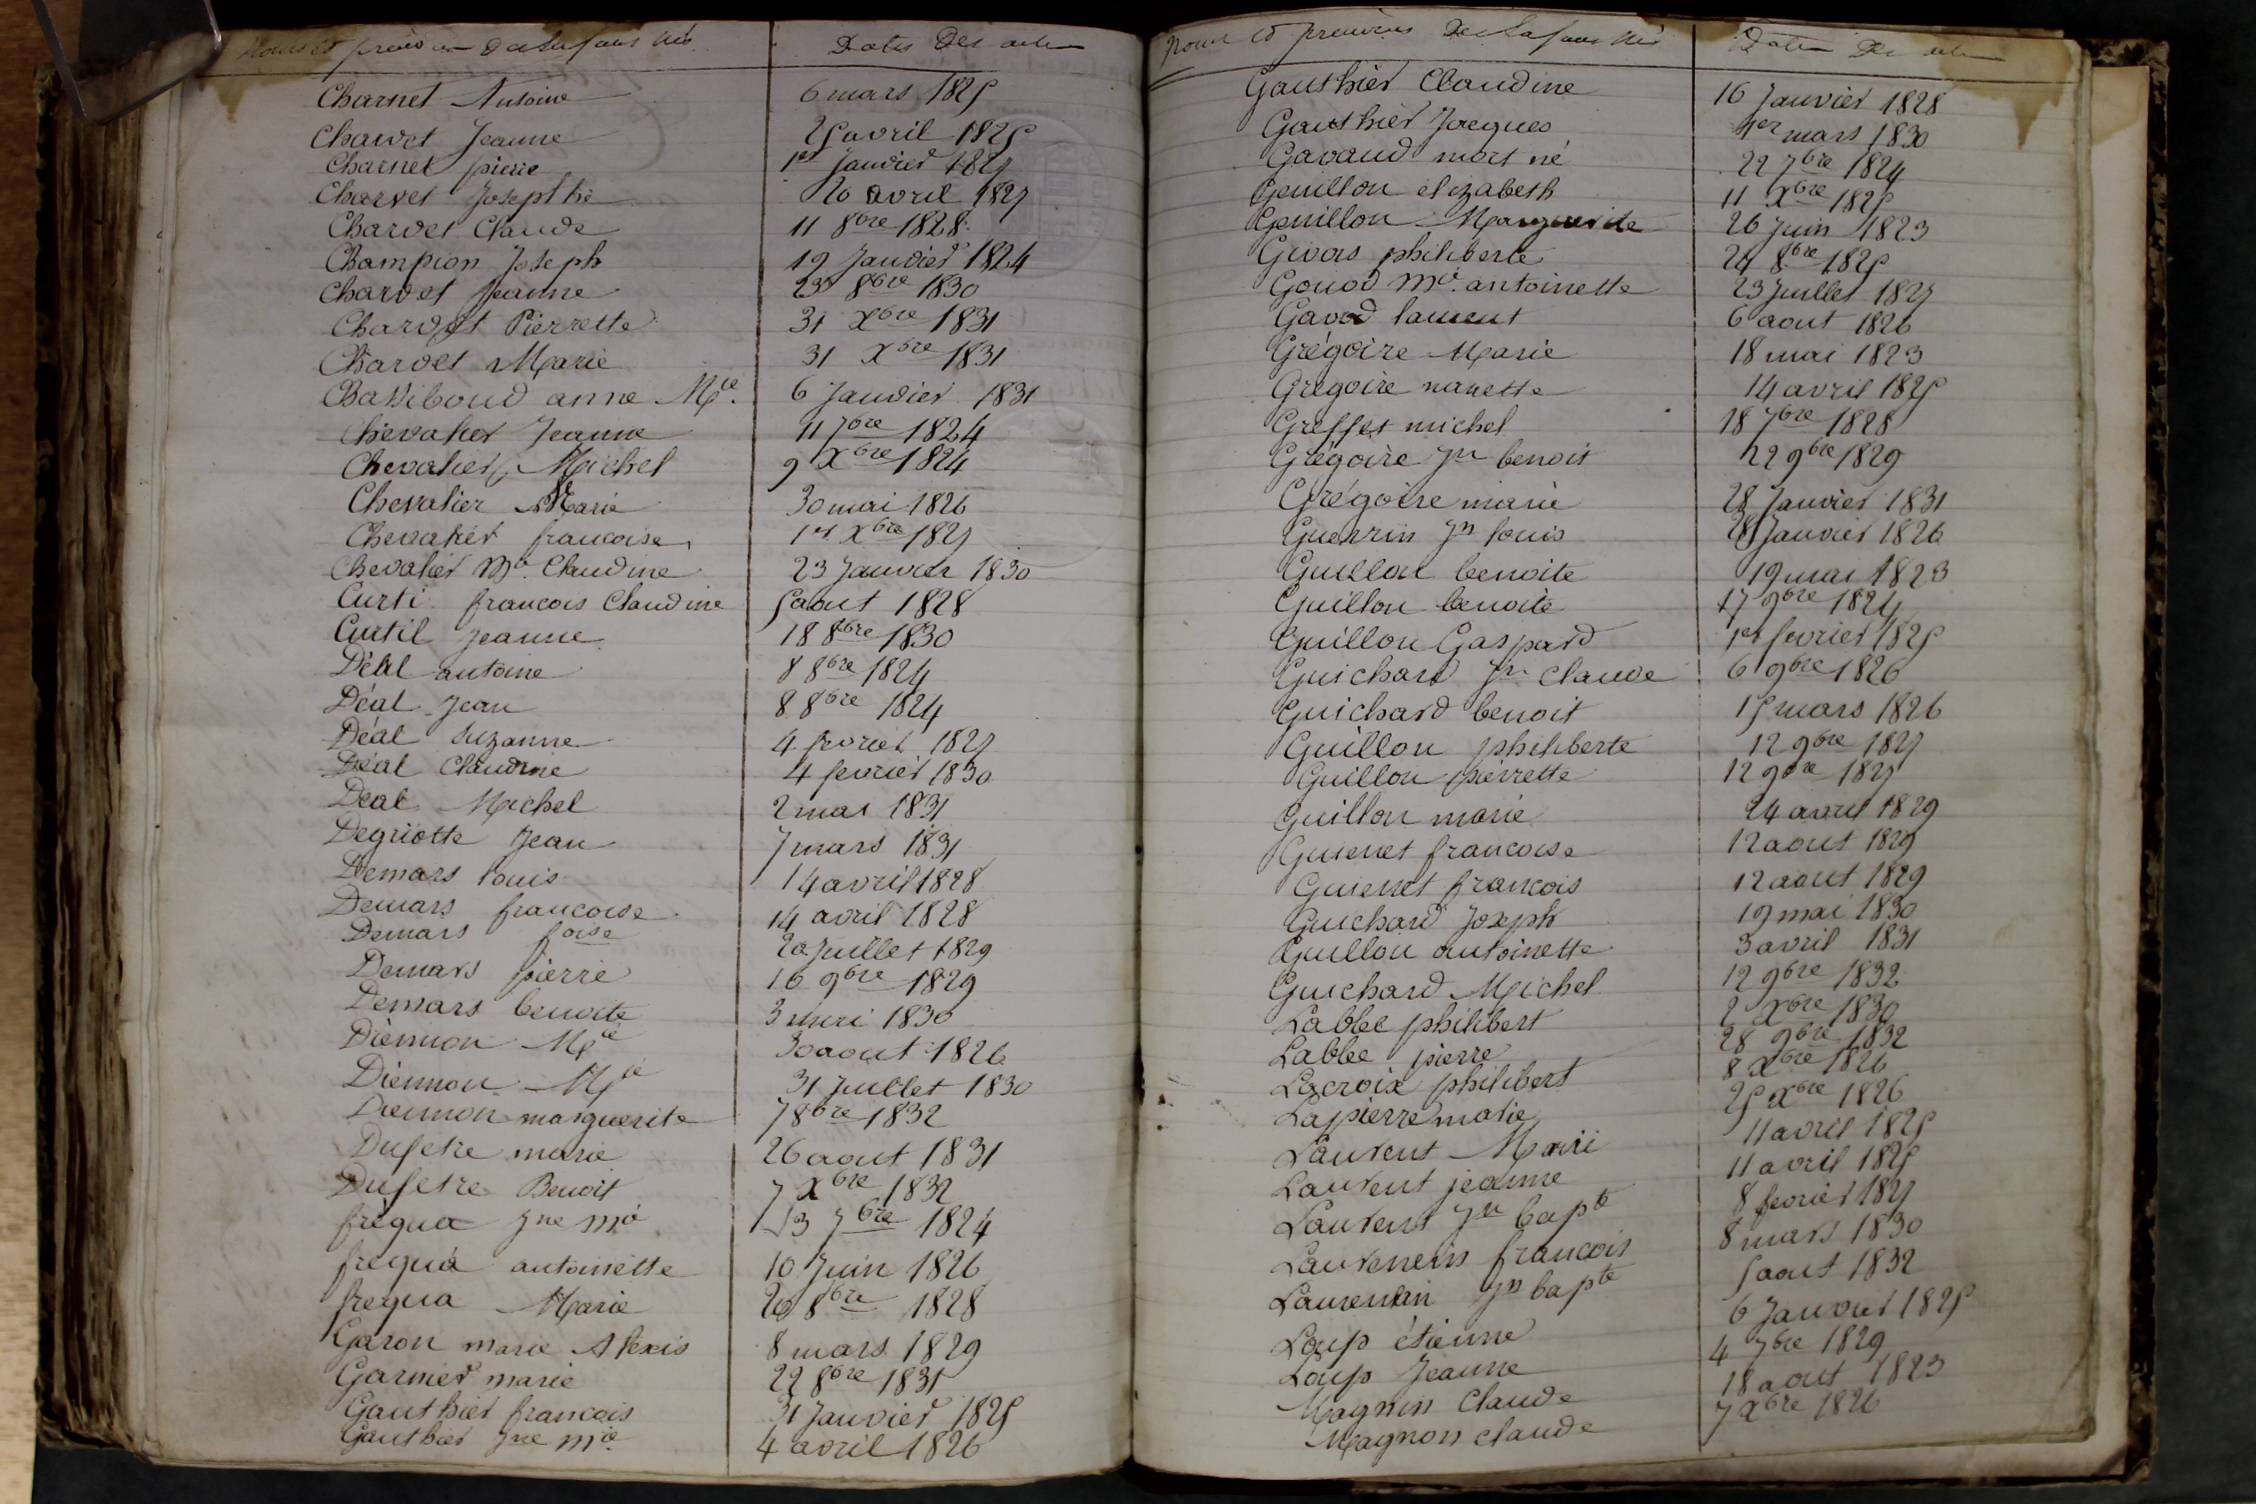 Noms et prénoms des Enfans nés Dates Des actes
Charnet Antoine 6 mars 1825
Charvet Jeanne 25 avril 1825
Charnet pierre 1er Janvier 1827
Charvet Josephe 20 avril 1827
Charvet Claude 11 8bre 1828
Champion Joseph 19 Janvier 1824
Charvet Jeanne 23 8bre 1830
Charvet Pierrette 31 Xbre 1831
Charvet Marie 31 Xbre 1831
Chassiboud anne Mie. 6 Janvier 1831
Chevalier Jeanne 11 7bre 1824
Chevalier Michel 9 Xbre 1824
Chevalier Marie 30 mai 1826
Chevalier francoise 1er Xbre 1827
Chevalier Mie. Claudine 23 Janvier 1830
Curti francois Claudine 5 aout 1828
Curtil Jeanne 18 8bre 1830
Déal antoine 8 8bre 1824
Déal Jean 8 8bre 1824
Déal Suzanne 4 fevrier 1827
Déal Claudine 4 fevrier 1830
Déal Michel 2 mai 1831
Degriotte Jean 7 mars 1831
Demars louis 14 avril 1828
Demars francoise 14 avril 1828
Demars foise 20 Juillet 1829
Demars pierre 16 9bre 1829
Demars benoite 3 1830
Diennon Mie 30 aout 1826
Diennon Mie 31 Juillet 1830
Diennon marguerite 7 8bre 1832
Dufetre marie 26 aout 1831
Dufetre Benoit 7 Xbre 1832
frequa Jne mie 13 7bre 1824
frequa antoinette 10 Juin 1826
frequa Marie 20 8bre 1828
Garon marie Alexis 8 mars 1829
Garnier marie 22 8bre 1831
Gauthier francois 31 Janvier 1825
Gauthier Jne mie. 4 avril 1826
Noms et prenoms Des Enfans nés Dates Des actes
Gauthier Claudine 16 Janvier 1828
Gauthier Jacques 1er mars 1830
Gavaud mort né 22 7bre 1824
Genillon elizabeth 11 Xbre 1825
Genillon Marguerite 26 Juin 1823
Givors philiberte 24 8bre 1825
Gouod mie. antoinette 23 Juillet 1827
Gavod laurent 6 aout 1826
Grégoire Marie 18 mai 1823
Gregoire nanette 14 avril 1825
Greffet michel 18 7bre 1828
Grégoire Jn benoit 22 9bre 1829
Grégoire marie 28 Janvier 1831
Guerrin Jn louis 28 Janvier 1826
Guillon benoite 19 mai 1823
Guillon benoite 17 9bre 1824
Guillon Gaspard 1er fevrier 1825
Guichard Jn claude 6 9bre 1826
Guichard benoit 15 mars 1826
Guillon philiberte 12 9bre 1827
Guillon pierrette 12 9bre 1827
Guillon marie 24 avril 1829
Guienet francoise 12 aout 1829
Guienet francois 12 aout 1829
Guichard Joseph 19 mai 1830
Guillon antoinette 3 avril 1831
Guichard Michel 12 9bre 1832
Labbe philibert 2 Xbre 1830
Labbe pierre 28 9bre 1832
Lacroix philibert 8 Xbre 1826
Lapierre marie 25 Xbre 1826
Laurent Marie 11 avril 1825
Laurent jeanne 11 avril 1825
Laurent Jn bapte 8 fevrier 1827
Laurencin francois 8 mars 1830
Laurencin Jn bapte 5 aout 1832
Loup étienne 6 Janvier 1825
Loup Jeanne 4 7bre 1829
Magnin Claude 18 aout 1823
Magnon claude 7 Xbre 1826